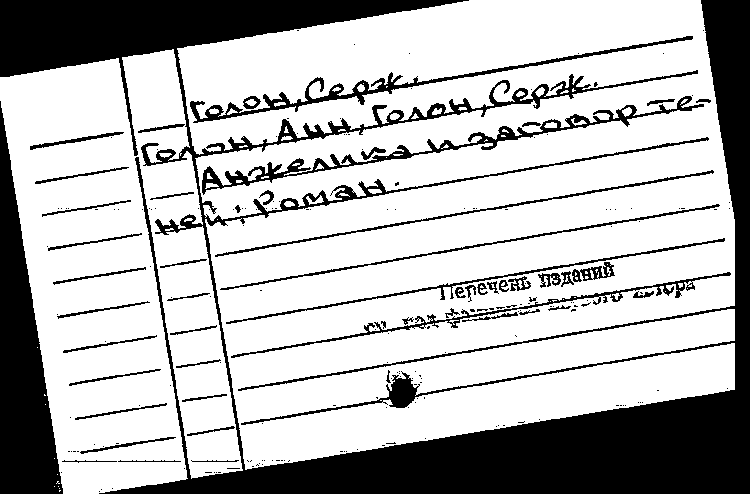 Голон, Серж.
Голон, Анн, Голон, Серж.
Анжелика и заговор те-
ней: Роман.
Перечень изданий
см. под фамилией первого автора